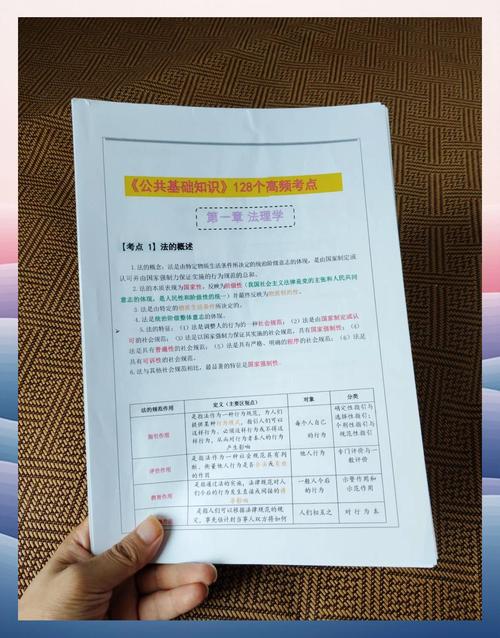 《公共基础知识》128个高频考点
第一章 法理学
【考点 1】法的概述
1.法的概念：法是由特定物质生活条件所决定的统治阶级意志的体现，是由国家制定或
认可并由国家强制力保证实施的行为规范的总和。
2.法的本质表现为国家性，反映为阶级性（我国社会主义法律是党的主张和人民共同
意志的体现，是人民性和阶级性的统一）并最终反映为物质制约性。
3.法是由特定的物质生活条件所决定的。
4.法是统治阶级整体意志的体现。
5.法的特征：（1）法是调整人的行为的一种社会规范；（2）法是由国家制定或认
可的社会规范；（3）法是以国家强制力保证其实施的社会规范，具有国家强制性；（4）
法是具有普遍性的社会规范；（5）法是具有严格、明确的程序的社会规范；（6）法是
具有可诉性的社会规范。
6.法与其他社会规范相比，最显著的特征是国家强制性。
法的规范作用 定义（主要区别点） 对象 分类
指引作用 是指法作为一种行为规范，为人们
提供某种行为模式，指引人们可以
这样行为、必须这样行为或不得这
样行为，从而对行为者本人的行为
产生影响 每个人自己
的行为 确定性指引与
选择性指引；
个别性指引与
规范性指引
评价作用 是指法作为一种社会规范具有判
断、衡量他人行为是否合法或有效
的作用 他人行为 专门评价与一
般评价
教育作用 是指通过法的实施，法律规范对人
们今后的行为发生直接或间接的诱
导影响 一般人今后
的行为 示警作用和
示范作用
是指人们可以根据法律规范的规
定，事先估计到当事人双方将如何 人们相互之 对行为本